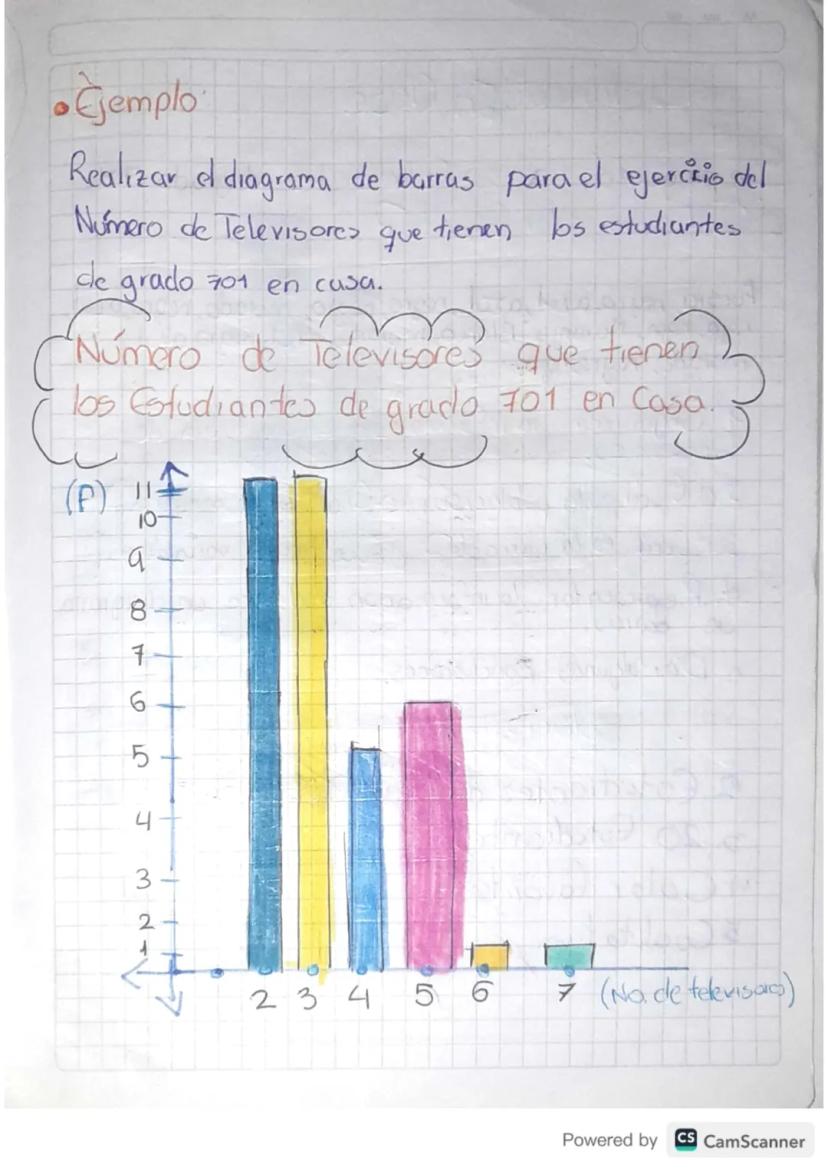 • Ejemplo
Realizar el diagrama de barras para el ejercicio del
Número de Televisores que tienen los estudiantes
de grado 701 en casa.
Número de Televisores que tienen
los Estudiantes de grado 701 en Casa.
(f)
11
10
9
8
7
6
5
4
3
2
1
2 3 4 5 6 7 (No. de televisores)
Powered by CS CamScanner